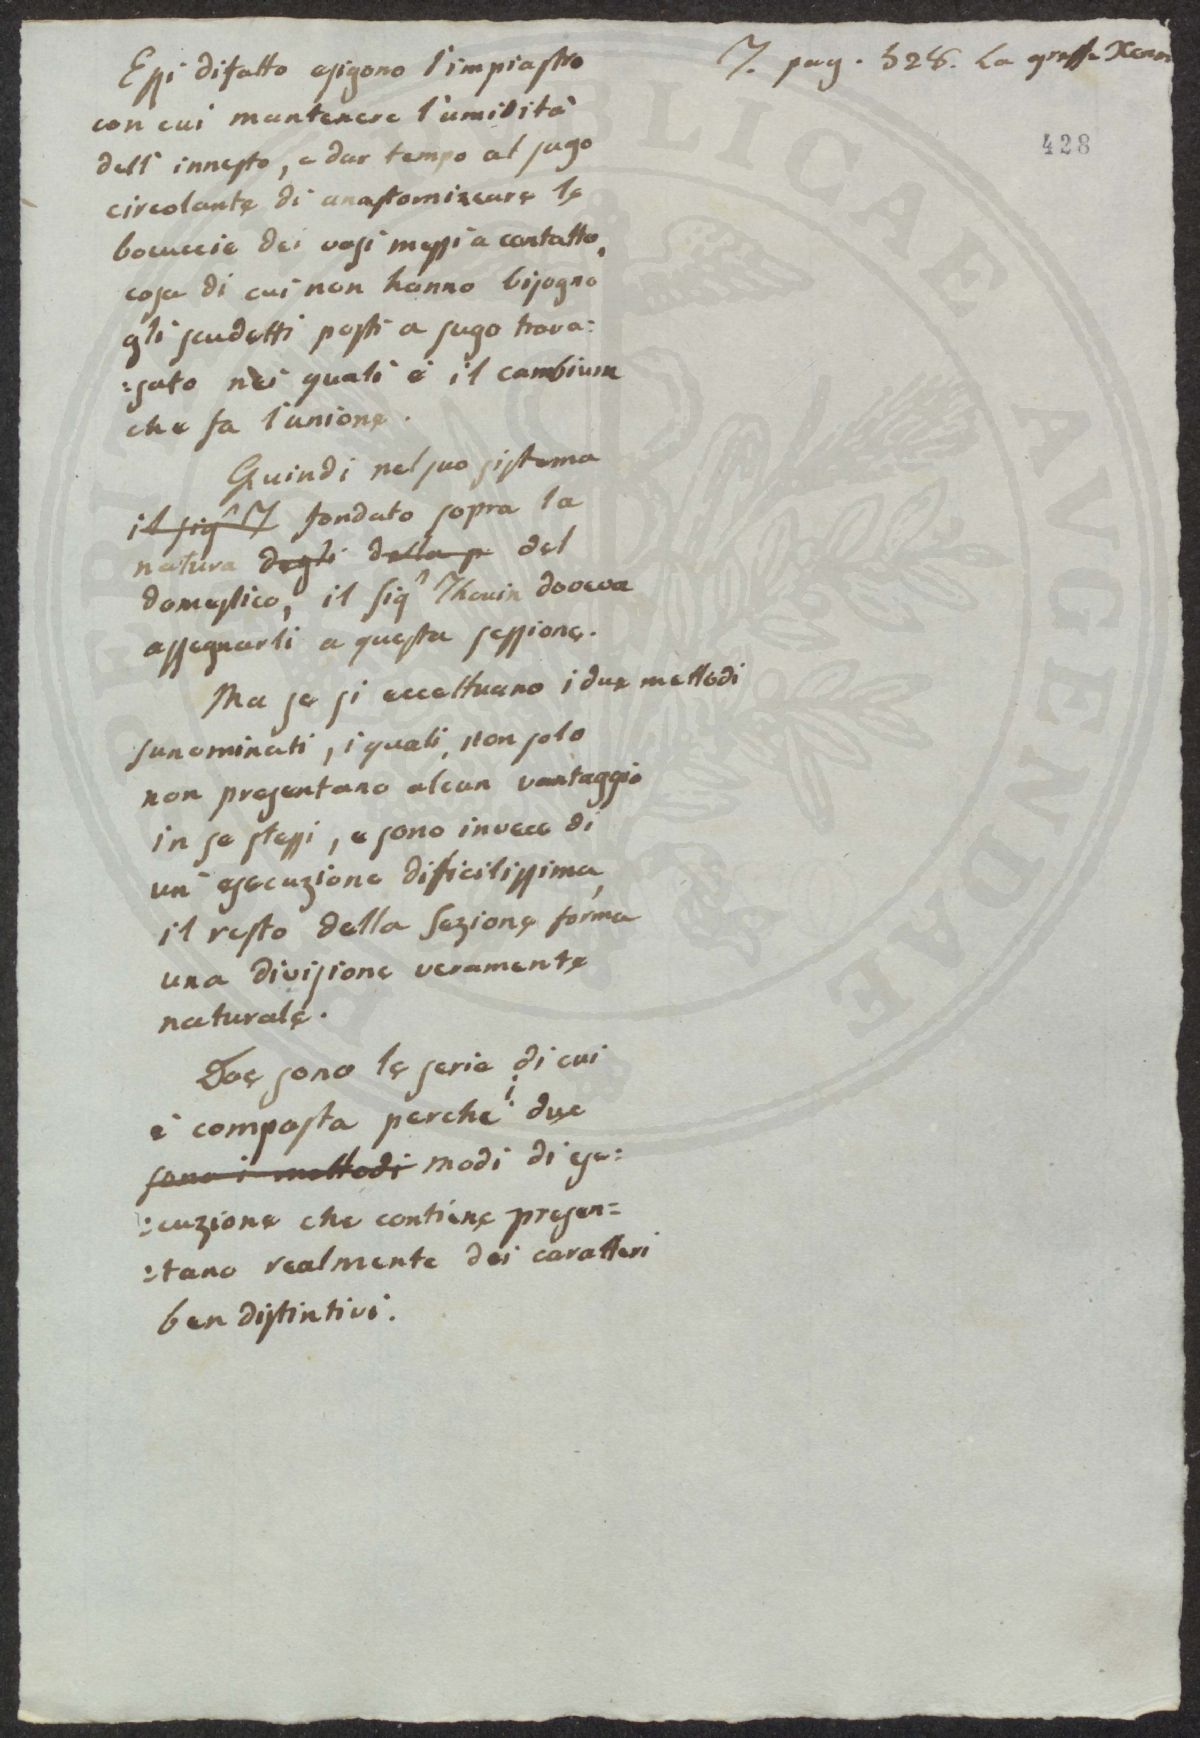 T. pag. 528. La greffe Xenon
428
Essi difatto esigono l'impiastro
con cui mantenere l'umidità
dell'innesto, e dar tempo al sugo
circolante di anastomizzare le
boccuccie dei vasi messi a contatto,
cosa di cui non hanno bisogno
gli scudetti posti a sugo trava:
:sato nei quali è il cambium
che fa l'unione.
Quindi nel suo sistema
il sigr T fondato sopra la
natura degli della p del
domestico, il Sigr Thouin doveva
assegnarli a questa sessione.
Ma se si eccettuano i due mettodi
sunominati, i quali, non solo
non presentano alcun vantaggio
in se stessi, e sono invece di
un esecuzione difficilissima,
il resto della Sezione forma
una divisione veramente
naturale.
Due sono le serie di cui
è composta perchè i due
sono i mettodi modi di ese:
:cuzione che contiene presen=
:tano realmente dei caratteri
ben distintivi.
PUBLICAE AVGENDAE